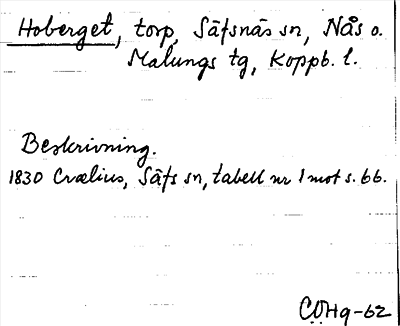 Hoberget, torp, Säfsnäs sn, Nås o.
Malungs tg, Koppb. l.
Beskrivning.
1830 Crælius, Säfs sn, tabell nr 1 mot s. 66.
COHq-62